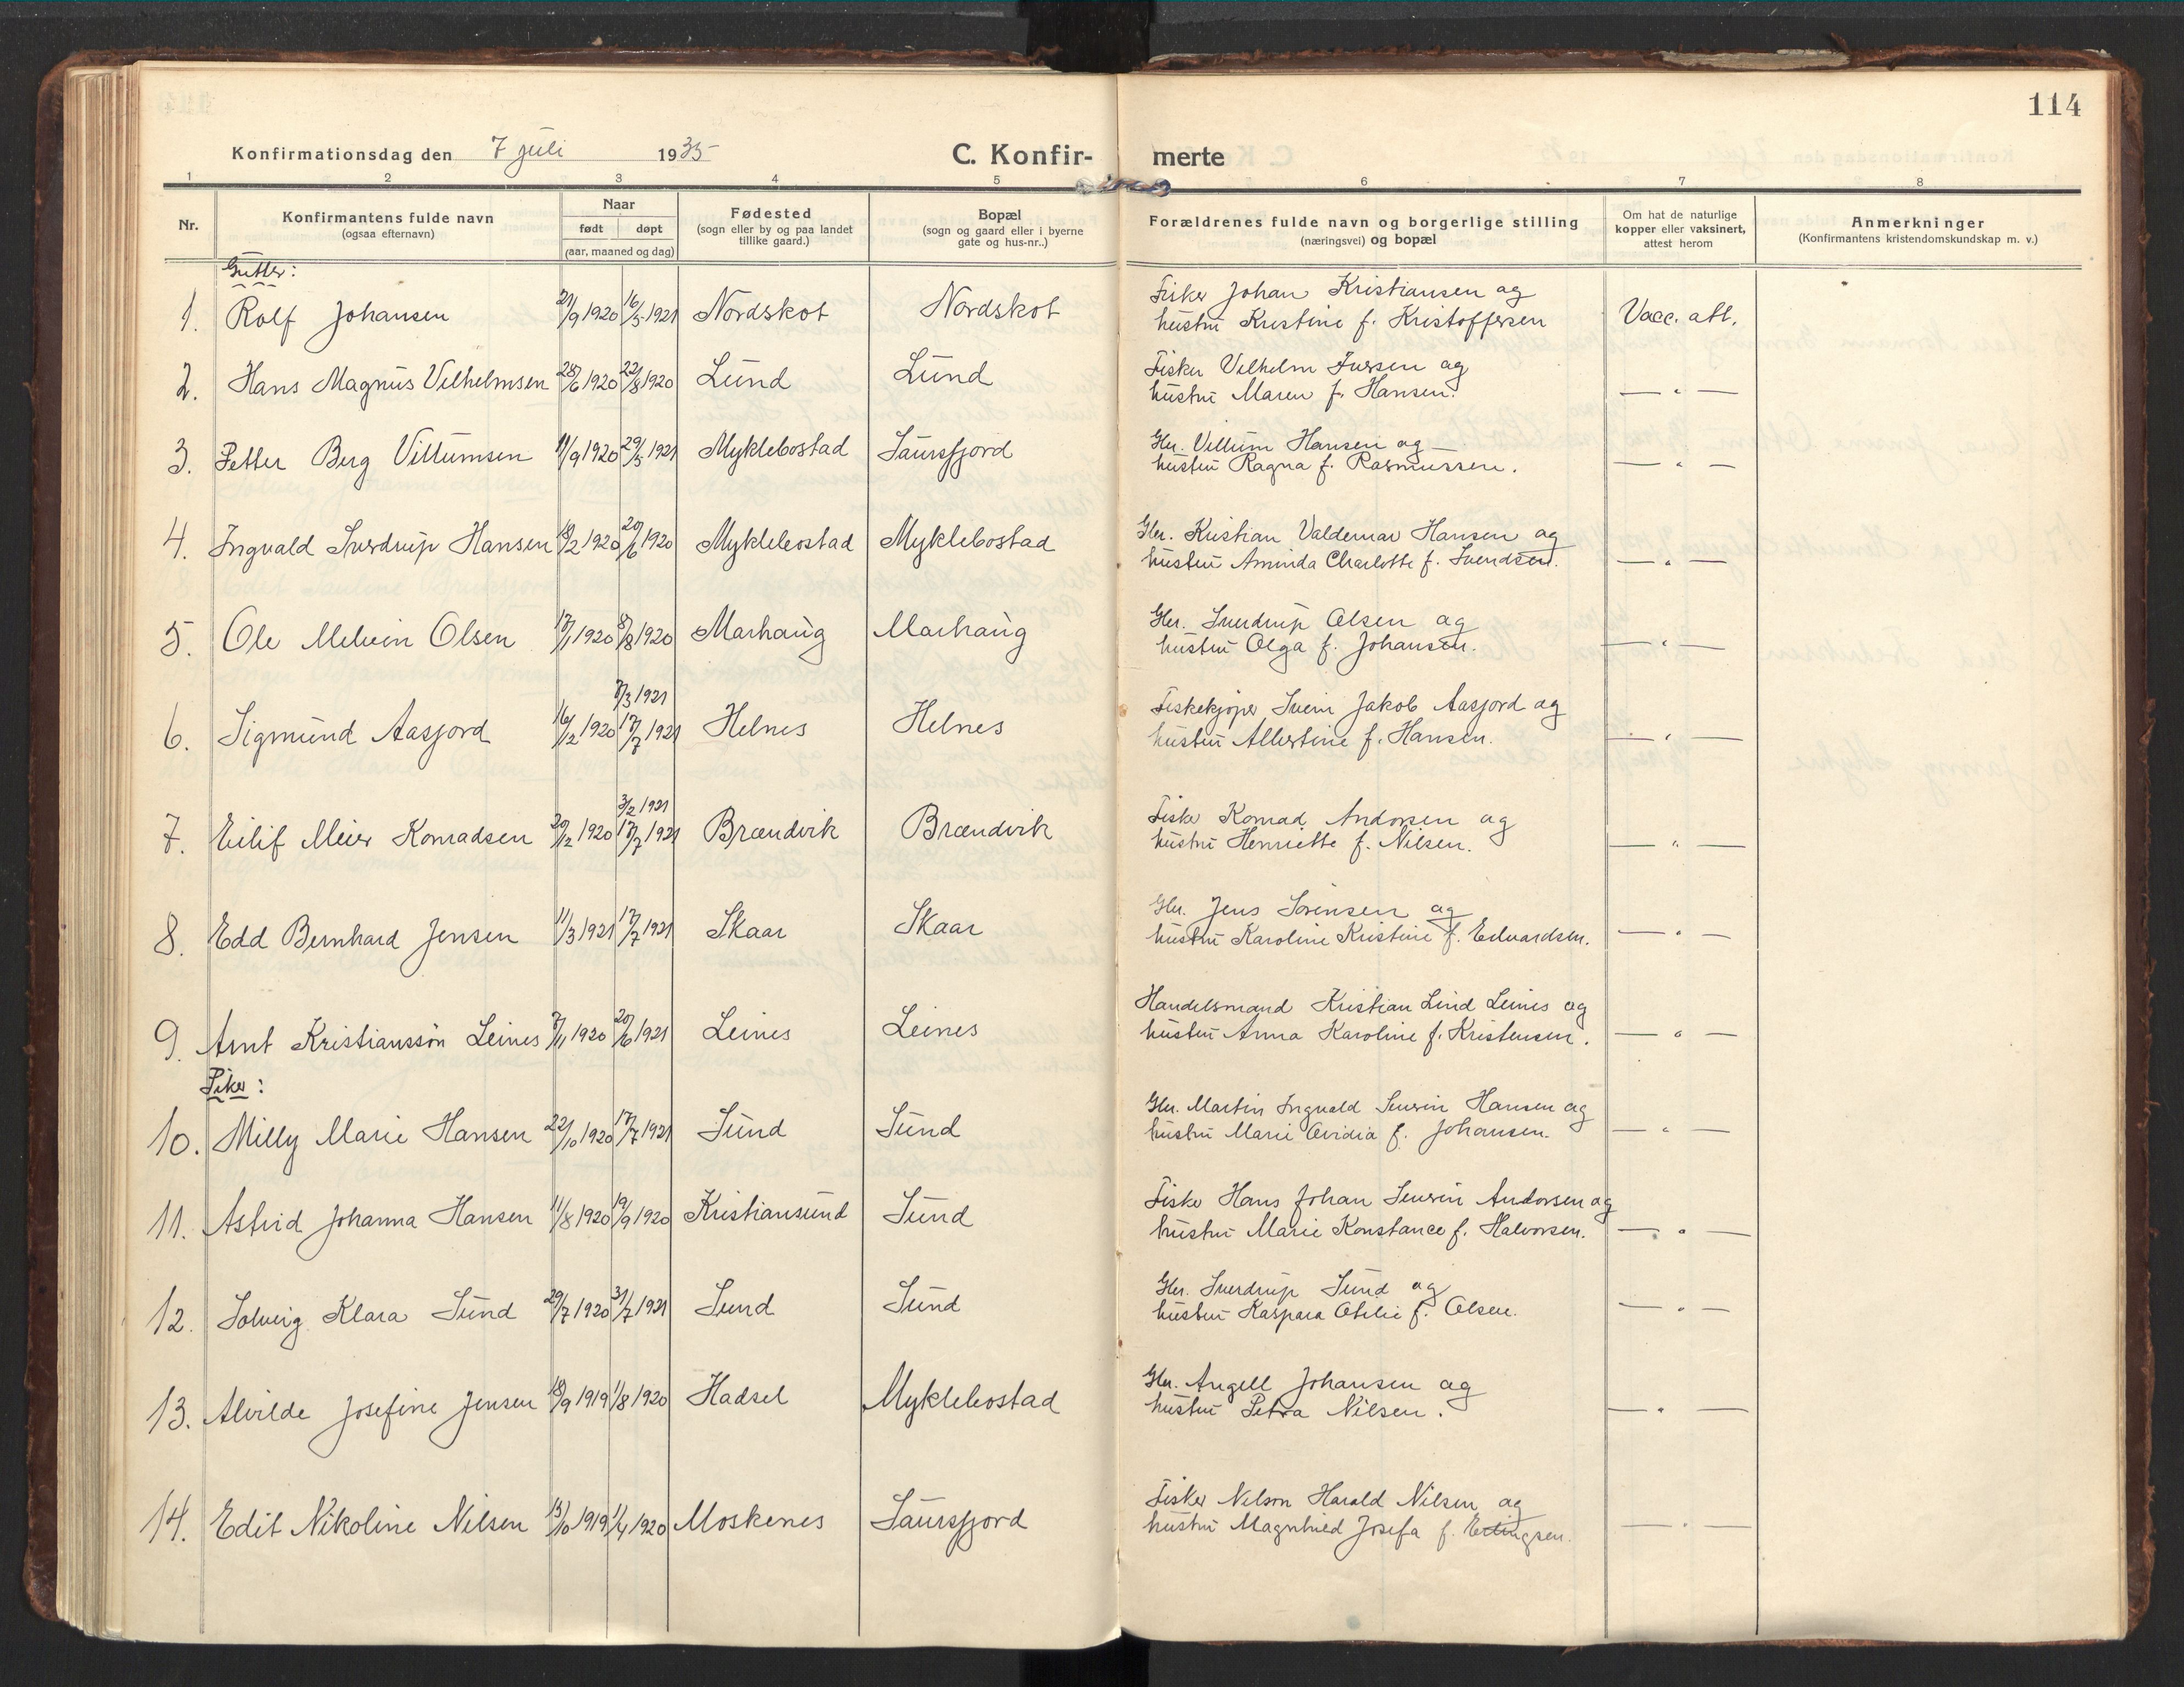 114
Konfirmationsdag den 7 juli 1935
C. Konfir- merte
1 2 3 4 5 6 7 8
Nr.
Konfirmantens fulde navn
(ogsaa efternavn)
Naar
født døpt
(aar, maaned og dag)
Fødested
(sogn eller by og paa landet
tillike gaard.)
Bopæl
(sogn og gaard eller i byerne
gate og hus-nr..)
Forældrenes fulde navn og borgerlige stilling
(næringsvei) og bopæl
Om hat de naturlige
kopper eller vaksinert,
attest herom
Anmerkninger
(Konfirmantens kristendomskundskap m. v.)
Gutter:
1. Rolf Johansen 21/9 1920 16/5 1921 Nordskot Nordskot
Fisker Johan Kristiansen og
hustru Kristine f. Kristoffersen
Vacc. att.
2. Hans Magnus Vilhelmsen 28/6 1920 22/8 1920 Lund Lund
Fisker Vilhelm Iversen og
hustru Maren f. Hansen.
— " —
3. Petter Berg Villumsen 11/9 1920 29/5 1921 Myklebostad Saursfjord
Gbr. Villum Hansen og
hustru Ragna f. Rasmussen.
— " —
4. Ingvald Sverdrup Hansen 18/2 1920 20/6 1920 Myklebostad Myklebostad
Gbr. Kristian Valdemar Hansen og
hustru Aminda Charlotte f. Svendsen.
— " —
5. Ole Melvin Olsen 17/1 1920 8/8 1920 Marhaug Marhaug
Gbr. Sverdrup Olsen og
hustru Olga f. Johansen.
— " —
7/3 1921
6. Sigmund Aasjord 16/12 1920 17/7 1921 Helnes Helnes
Fiskekjøper Svein Jakob Aasjord og
hustru Albertine f. Hansen.
— " —
3/2 1921
7. Eilif Meier Konradsen 20/12 1920 17/7 1921 Brændvik Brændvik
Fisker Konrad Andorsen og
hustru Henriette f. Nilsen.
— " —
8. Edd Bernhard Jensen 11/3 1921 17/7 1921 Skaar Skaar
Gbr. Jens Sørensen og
hustru Karoline Kristine f. Edvardsen.
— " —
9. Arnt Kristianssøn Leines 7/11 1920 20/6 1921 Leines Leines
Handelsmand Kristian Lind Leines og
hustru Anna Karoline f. Kristensen.
— " —
Piker:
10. Milly Marie Hansen 22/10 1920 17/7 1921 Sund Sund
Gbr. Martin Ingvald Severin Hansen og
hustru Marie Ovidia f. Johansen.
— " —
11. Astrid Johanna Hansen 11/8 1920 19/9 1920 Kristiansund Sund
Fisker Hans Johan Severin Andorsen og
hustru Marie Konstance f. Halvorsen.
— " —
12. Solveig Klara Sund 29/7 1920 31/7 1921 Sund Sund
Gbr. Sverdrup Sund og
hustru Kaspara Otilie f. Olsen.
— " —
13. Alvilde Josefine Jensen 18/9 1919 1/8 1920 Hadsel Myklebostad
Gbr. Angell Johansen og
hustru Petra Nilsen.
— " —
14. Edit Nikoline Nilsen 13/10 1919 1/4 1920 Moskenes Saursfjord
Fisker Nelson Harald Nilsen og
hustru Magnhild Josefa f. Erlingsen.
— " —